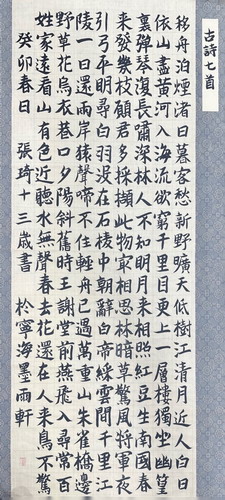 古詩七首
移舟泊煙渚日暮客愁新野曠天低樹江清月近人白日
依山盡黃河入海流欲窮千里目更上一層樓獨坐幽篁
裏彈琴復長嘯深林人不知明月來相照紅豆生南國春
來發幾枝願君多採擷此物冣相思林暗草驚風將軍夜
引弓平明尋白羽沒在石棱中朝辭白帝綵雲間千里江
陵一日還兩岸猿聲啼不住輕舟已過萬重山朱雀橋邊
野草花烏衣巷口夕陽斜舊時王謝堂前燕飛入尋常百
姓家遠看山有色近聽水無聲春去花還在人來鳥不驚
癸卯春日 張琦十三歲書 於寧海墨雨軒